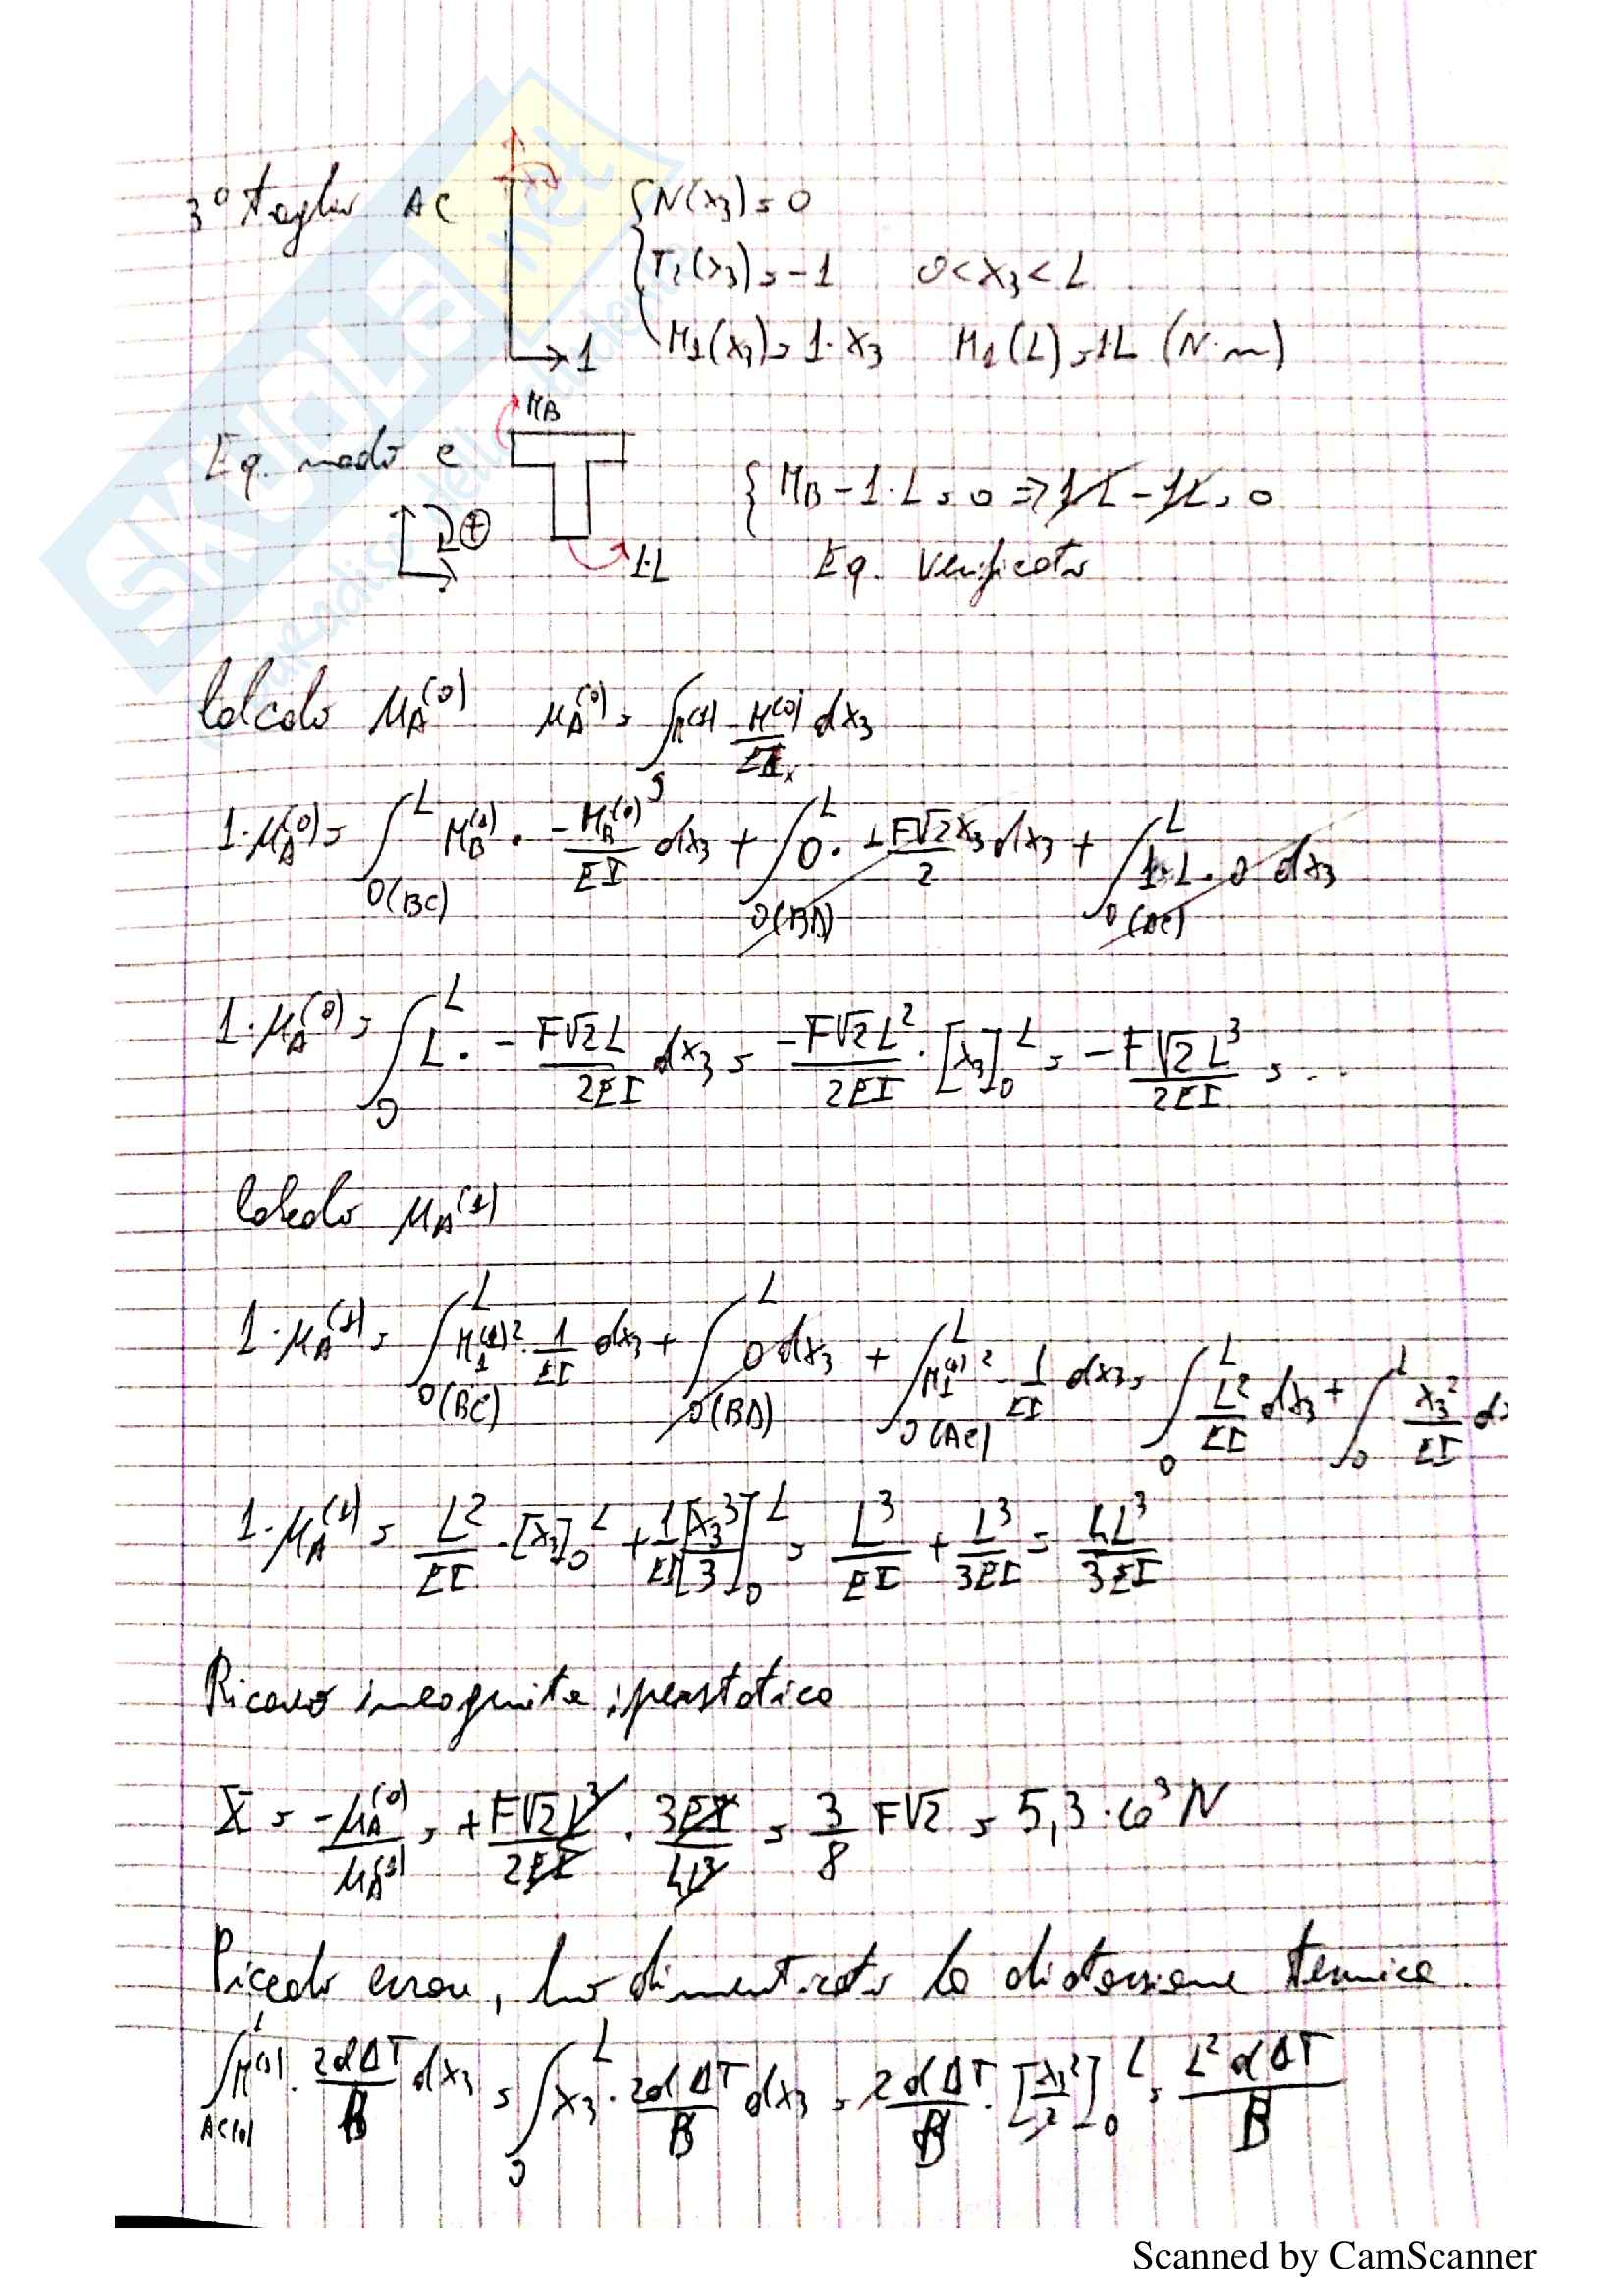 3° Taglio AC
{ N(x₃) = 0
T₂(x₃) = -1   0 < x₃ < L
M₁(x₃) = 1·x₃   M₁(L) = 1L (N·m)
→1
MB
Eq. nodo C
{ MB - 1·L = 0 ⇒ 1L - 1L = 0
⊕
1·L
Eq. Verificata
SKUOLA.net
Calcolo μA⁽⁰⁾   μA⁽⁰⁾ = ∫S M⁽¹⁾ · M⁽⁰⁾/EIx dx₃
1·μA⁽⁰⁾ = ∫0(BC)^L MB⁽¹⁾ · -MB⁽⁰⁾/EI dx₃ + ∫0(BD)^L 0 · +F√2x₃/2 dx₃ + ∫0(AC)^L 1·L · 0 dx₃
1·μA⁽⁰⁾ = ∫0^L L · -F√2L/2EI dx₃ = -F√2L²/2EI · [x₃]0^L = -F√2L³/2EI = ...
Calcolo μA⁽¹⁾
1·μA⁽¹⁾ = ∫0(BC)^L M₁⁽¹⁾² · 1/EI dx₃ + ∫0(BD)^L 0 dx₃ + ∫0(AC)^L M₁⁽¹⁾² · 1/EI dx₃ = ∫0^L L²/EI dx₃ + ∫0^L x₃²/EI dx
1·μA⁽¹⁾ = L²/EI · [x₃]0^L + 1/EI [x₃³/3]0^L = L³/EI + L³/3EI = 4L³/3EI
Ricavo incognita iperstatica
X = -μA⁽⁰⁾/μA⁽¹⁾ = +F√2L³/2EI · 3EI/4L³ = 3/8 F√2 = 5,3·10³ N
Piccolo errore, ho dimenticato la distorsione termica.
∫AC(0)^L M⁽¹⁾ · 2αΔT/B dx₃ = ∫0^L x₃ · 2αΔT/B dx₃ = 2αΔT/B · [x₃²/2]0^L = L²αΔT/B
Scanned by CamScanner